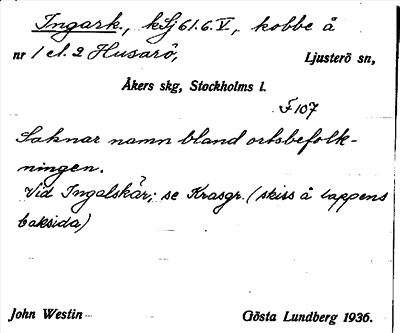 Ingark., kSj 61.6.V., kobbe å
nr 1 el. 2 Husarö, Ljusterö sn,
Åkers skg, Stockholms l.
F 107
Saknar namn bland ortsbefolk-
ningen.
Vid Ingalskär; se Krasgr. (skiss å lappens
baksida)
John Westin Gösta Lundberg 1936.